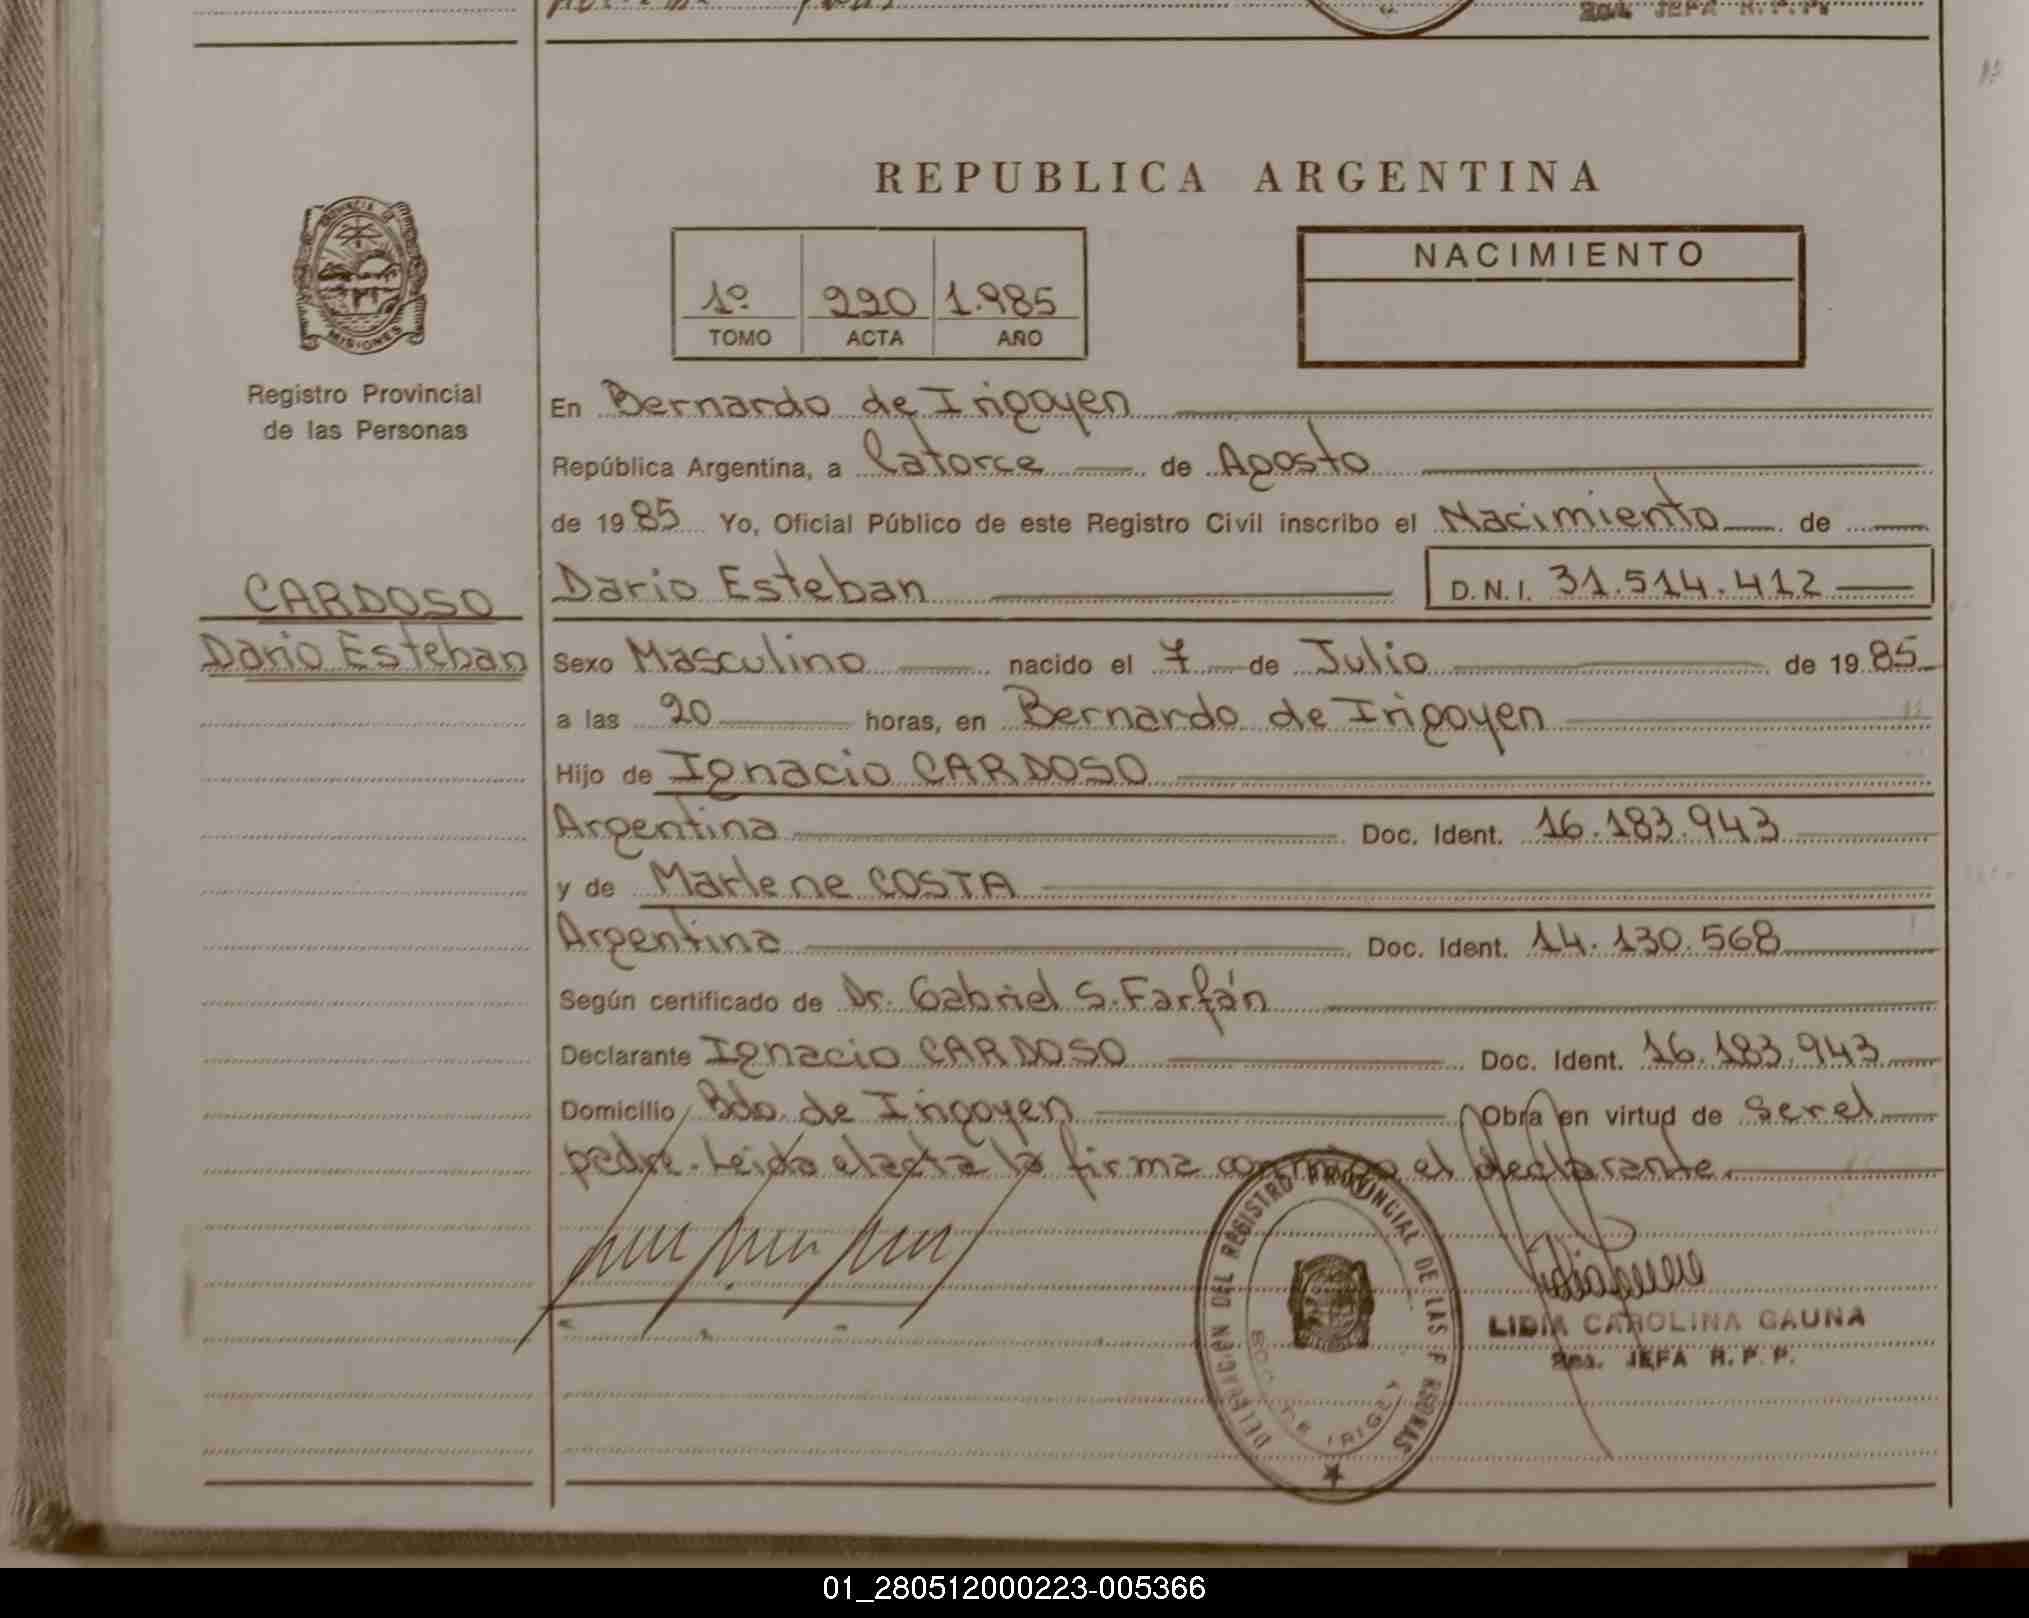 JEFA R.P.P.
REPUBLICA ARGENTINA
NACIMIENTO
1º 220 1.985
TOMO ACTA AÑO
PROVINCIA DE
MISIONES
Registro Provincial
de las Personas
En Bernardo de Irigoyen
República Argentina, a Catorce de Agosto
de 1985 Yo, Oficial Público de este Registro Civil inscribo el Nacimiento de
CARDOSO
Dario Esteban
Dario Esteban D.N.I. 31.514.412
Sexo Masculino nacido el 7 de Julio de 1985
a las 20 horas, en Bernardo de Irigoyen
Hijo de Ignacio CARDOSO
Argentina Doc. Ident. 16.183.943
y de Marlene COSTA
Argentina Doc. Ident. 14.130.568
Según certificado de Dr. Gabriel S. Farfán
Declarante Ignacio CARDOSO Doc. Ident. 16.183.943
Domicilio Bdo. de Irigoyen Obra en virtud de ser el
padre. Leida el acta la firma conmigo el declarante.
DELEGACION DEL REGISTRO PROVINCIAL DE LAS P RSONAS
BDO. DE IRIGOY
LIDIA CAROLINA GAUNA
JEFA R.P.P.
01_280512000223-005366